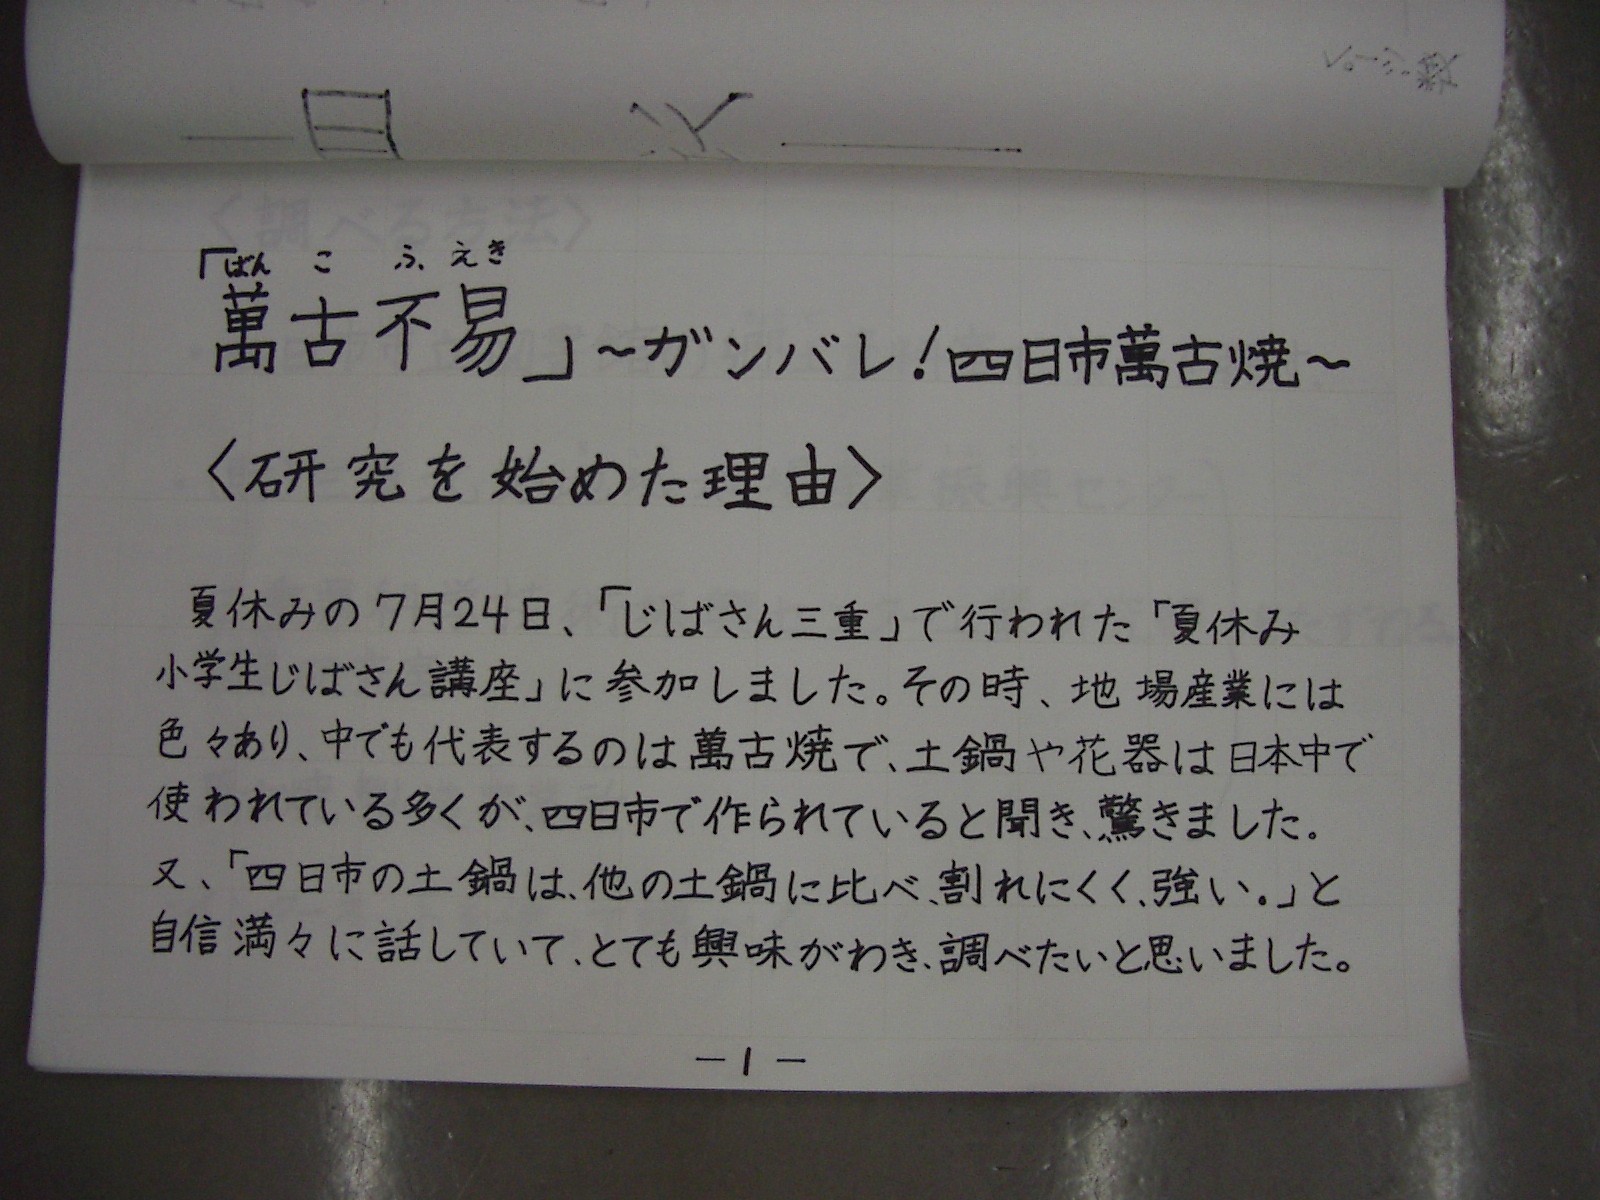 ページ数
目 次
「萬古不易」～ガンバレ!四日市萬古焼～
ばん こ ふ えき
〈研究を始めた理由〉
夏休みの7月24日、「じばさん三重」で行われた「夏休み
小学生じばさん講座」に参加しました。その時、地場産業には
色々あり、中でも代表するのは萬古焼で、土鍋や花器は日本中で
使われている多くが、四日市で作られていると聞き、驚きました。
又、「四日市の土鍋は、他の土鍋に比べ、割れにくく、強い。」と
自信満々に話していて、とても興味がわき、調べたいと思いました。
－1－